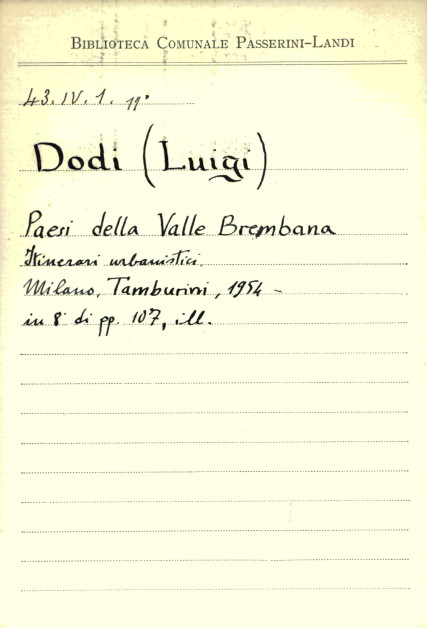 BIBLIOTECA COMUNALE PASSERINI-LANDI
43. IV. 1. 11°
Dodi (Luigi)
Paesi della Valle Brembana
Itinerari urbanistici.
Milano, Tamburini, 1954 -
in 8° di pp. 107, ill.